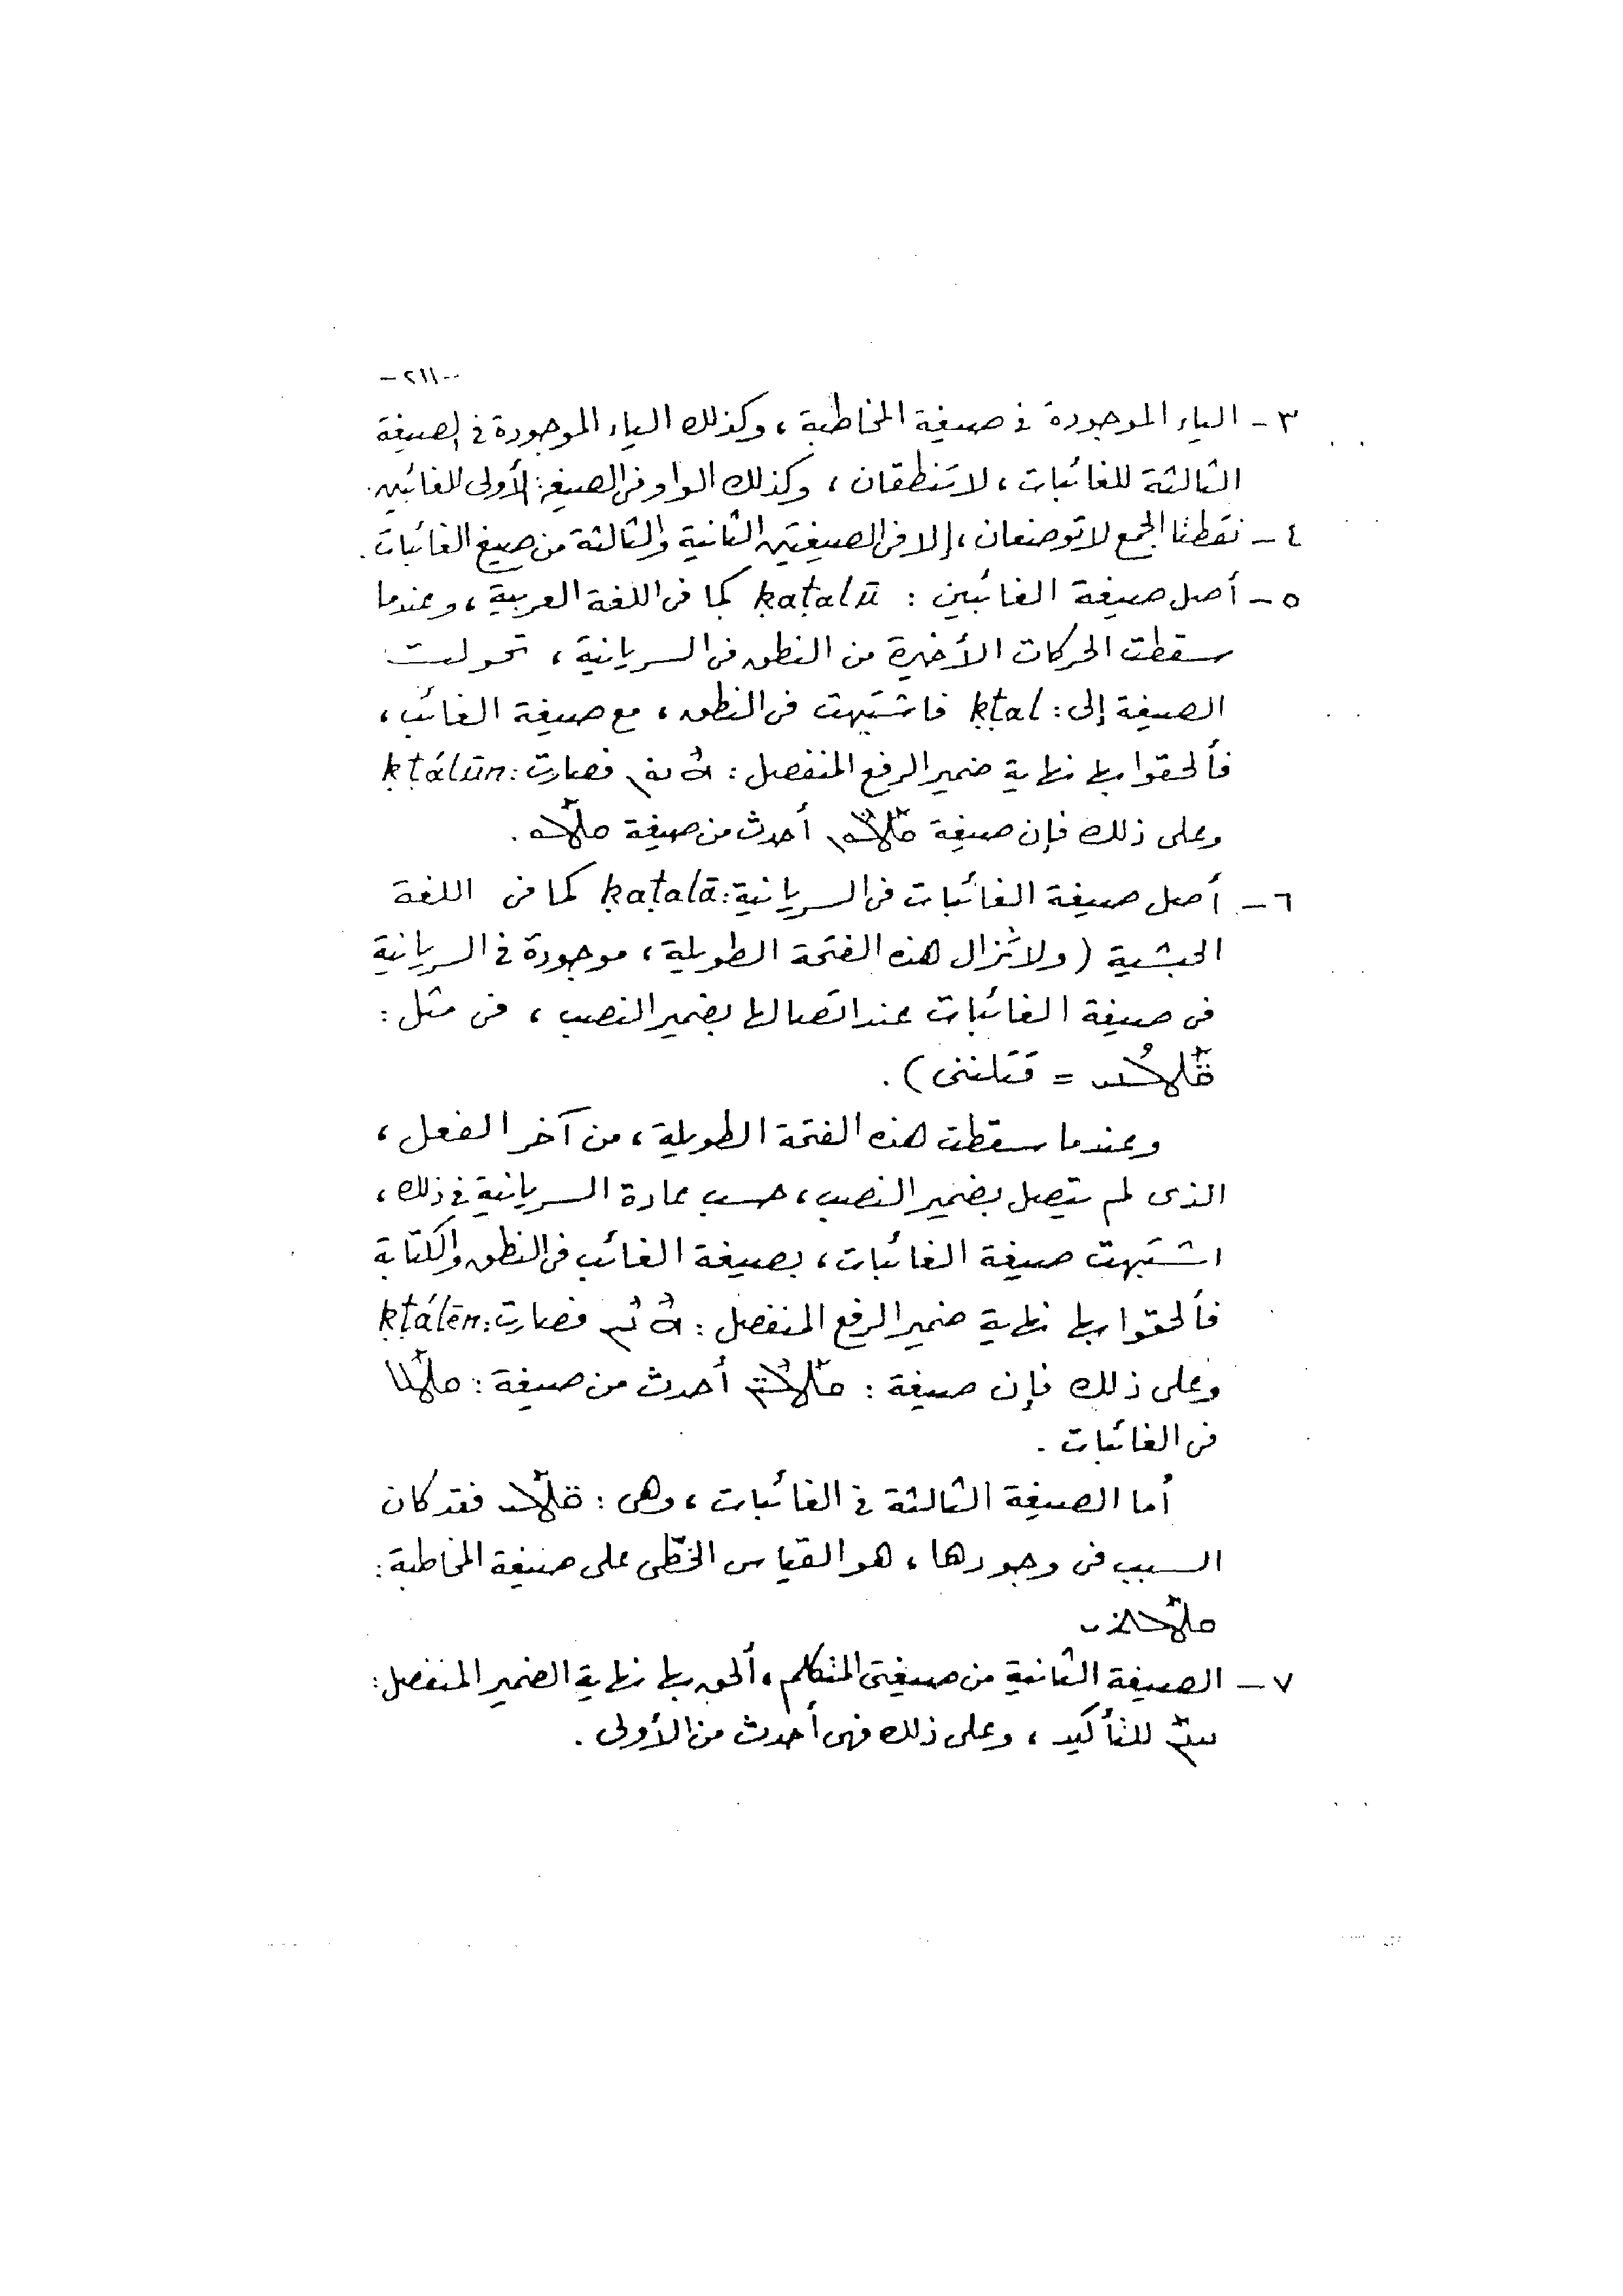 -٢١١-
٣- الياء الموجودة فى صيغة المخاطبة ، وكذلك الياء الموجودة فى الصيغة
الثالثة للغائبات ، لا تنطقان ، وكذلك الواو فى الصيغة الأولى للغائبين .
٤- نقطتا الجمع لا توضعان ، إلا فى الصيغتين الثانية والثالثة من صيغ الغائبات .
٥- أصل صيغة الغائبين : ḳaṭalū كما فى اللغة العربية ، وعندما
سقطت الحركات الأخيرة من النطق فى السريانية ، تحولت
الصيغة إلى : ḳṭal فاشتبهت فى النطق ، مع صيغة الغائب ،
فألحقوا بها نهاية ضمير الرفع المنفصل : ܗܶܢܽܘܢ فصارت : ḳṭálūn
وعلى ذلك فإن صيغة ܩܛܰܠܘܢ أحدث من صيغة ܩܛܰܠܘ .
٦- أصل صيغة الغائبات فى السريانية : ḳaṭalā كما فى اللغة
الحبشية ( ولا تزال هذه الفتحة الطويلة ، موجودة فى السريانية
فى صيغة الغائبات عند اتصالها بضمير النصب ، فى مثل :
ܩܰܛ̈ܠܳܢܝ = قتلننى ) .
وعندما سقطت هذه الفتحة الطويلة ، من آخر الفعل ،
الذى لم يتصل بضمير النصب ، حسب عادة السريانية فى ذلك ،
اشتبهت صيغة الغائبات ، بصيغة الغائب فى النطق والكتابة
فألحقوا بها نهاية ضمير الرفع المنفصل : ܗܶܢܶܝܢ فصارت : ḳṭálēn
وعلى ذلك فإن صيغة : ܩܛܰܠܶܝ̈ܢ أحدث من صيغة : ܩܛܰܠ
فى الغائبات .
أما الصيغة الثالثة فى الغائبات ، وهى : ܩܛܰܠ̈ܝ فقد كان
السبب فى وجودها ، هو القياس الخطّى على صيغة المخاطبة :
ܩܛܰܠܬܝ
٧- الصيغة الثانية من صيغتى المتكلم ، ألحق بها نهاية الضمير المنفصل :
ܚܢܰܢ للتأكيد ، وعلى ذلك فهى أحدث من الأولى .